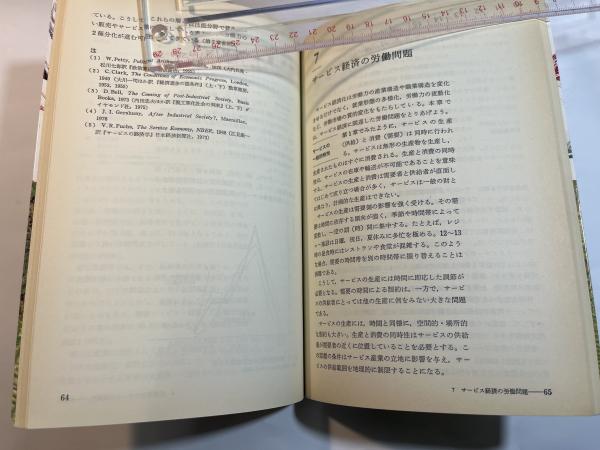 ている。こうして、これらの
い販売やサービス
2極分化が進む可
注
(1) W. Petty, Political Arithmetic
(2) C. Clark, The Conditions of Economic Progress, London,
1940 (大川一司ほか訳『経済進歩の諸条件』(上・下) 勁草書房,
1953, 1955)
(3) D. Bell, The Coming of Post-Industrial Society, Basic
Books, 1973 (内田忠夫ほか訳『脱工業社会の到来』(上, 下) ダ
イヤモンド社, 1975)
(4) J. I. Gershuny, After Industrial Society?, Macmillan,
1978
(5) V. R. Fuchs, The Service Economy, NBER, 1968 (江見康一
訳『サービスの経済学』日本経済新聞社, 1974)
64
7
サービス経済の労働問題
サービス経済化は労働力の産業構造や職業構造を変化
させるだけでなく、就業形態の多様化、労働力の流動化
など、労働市場の質的変化をもたらしている。本章で
は、サービス経済に関連した労働問題をとりあげよう。
サービスの
一般的特性
第1章でみたように、サービスの生産
(供給) と消費 (需要) は同時に行われ
る。サービスは無形の生産物を生産し、
生産されたものはすぐに消費される。生産と消費の同時
性は、サービスの在庫や輸送が不可能であることを意味
する。サービスの生産と消費は需要者と供給者が直面し
てはじめて成り立つ場合が多く、サービスは一般の財と
は異なり、計画的な生産はできない。
サービスの生産は需要側の影響を強く受ける。その需
要は時間に依存する傾向が強く、季節や時間帯によって
変動し、一定の時 (時) 間に集中する。たとえば、レジ
ャー施設は日曜、祝日、夏休みに多忙を極める。12〜13
時の昼食時にはレストランや食堂が混雑する。このよう
な場合、需要の時間帯を別の時間帯に振り替えることは
困難である。
こうして、サービスの生産には時間に即応した調節が
必要となる。需要の時間による制約は、一方で、サービ
スの供給者にとっては他の生産に例をみない大きな問題
である。
サービスの生産には、時間と同様に、空間的・場所的
な制約も大きい。生産と消費の同時性はサービスの供給
者が需要者の近くに位置していることを必要とする。こ
の空間の条件はサービス産業の立地に影響を与え、サー
ビスの供給範囲を地理的に制限することになる。
7 サービス経済の労働問題——65